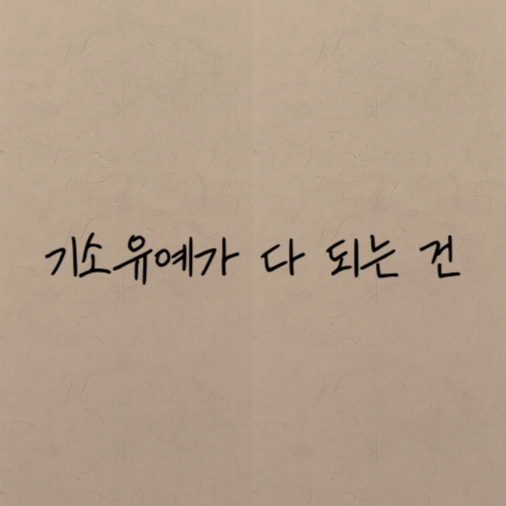 기소유예가 다 되는 건